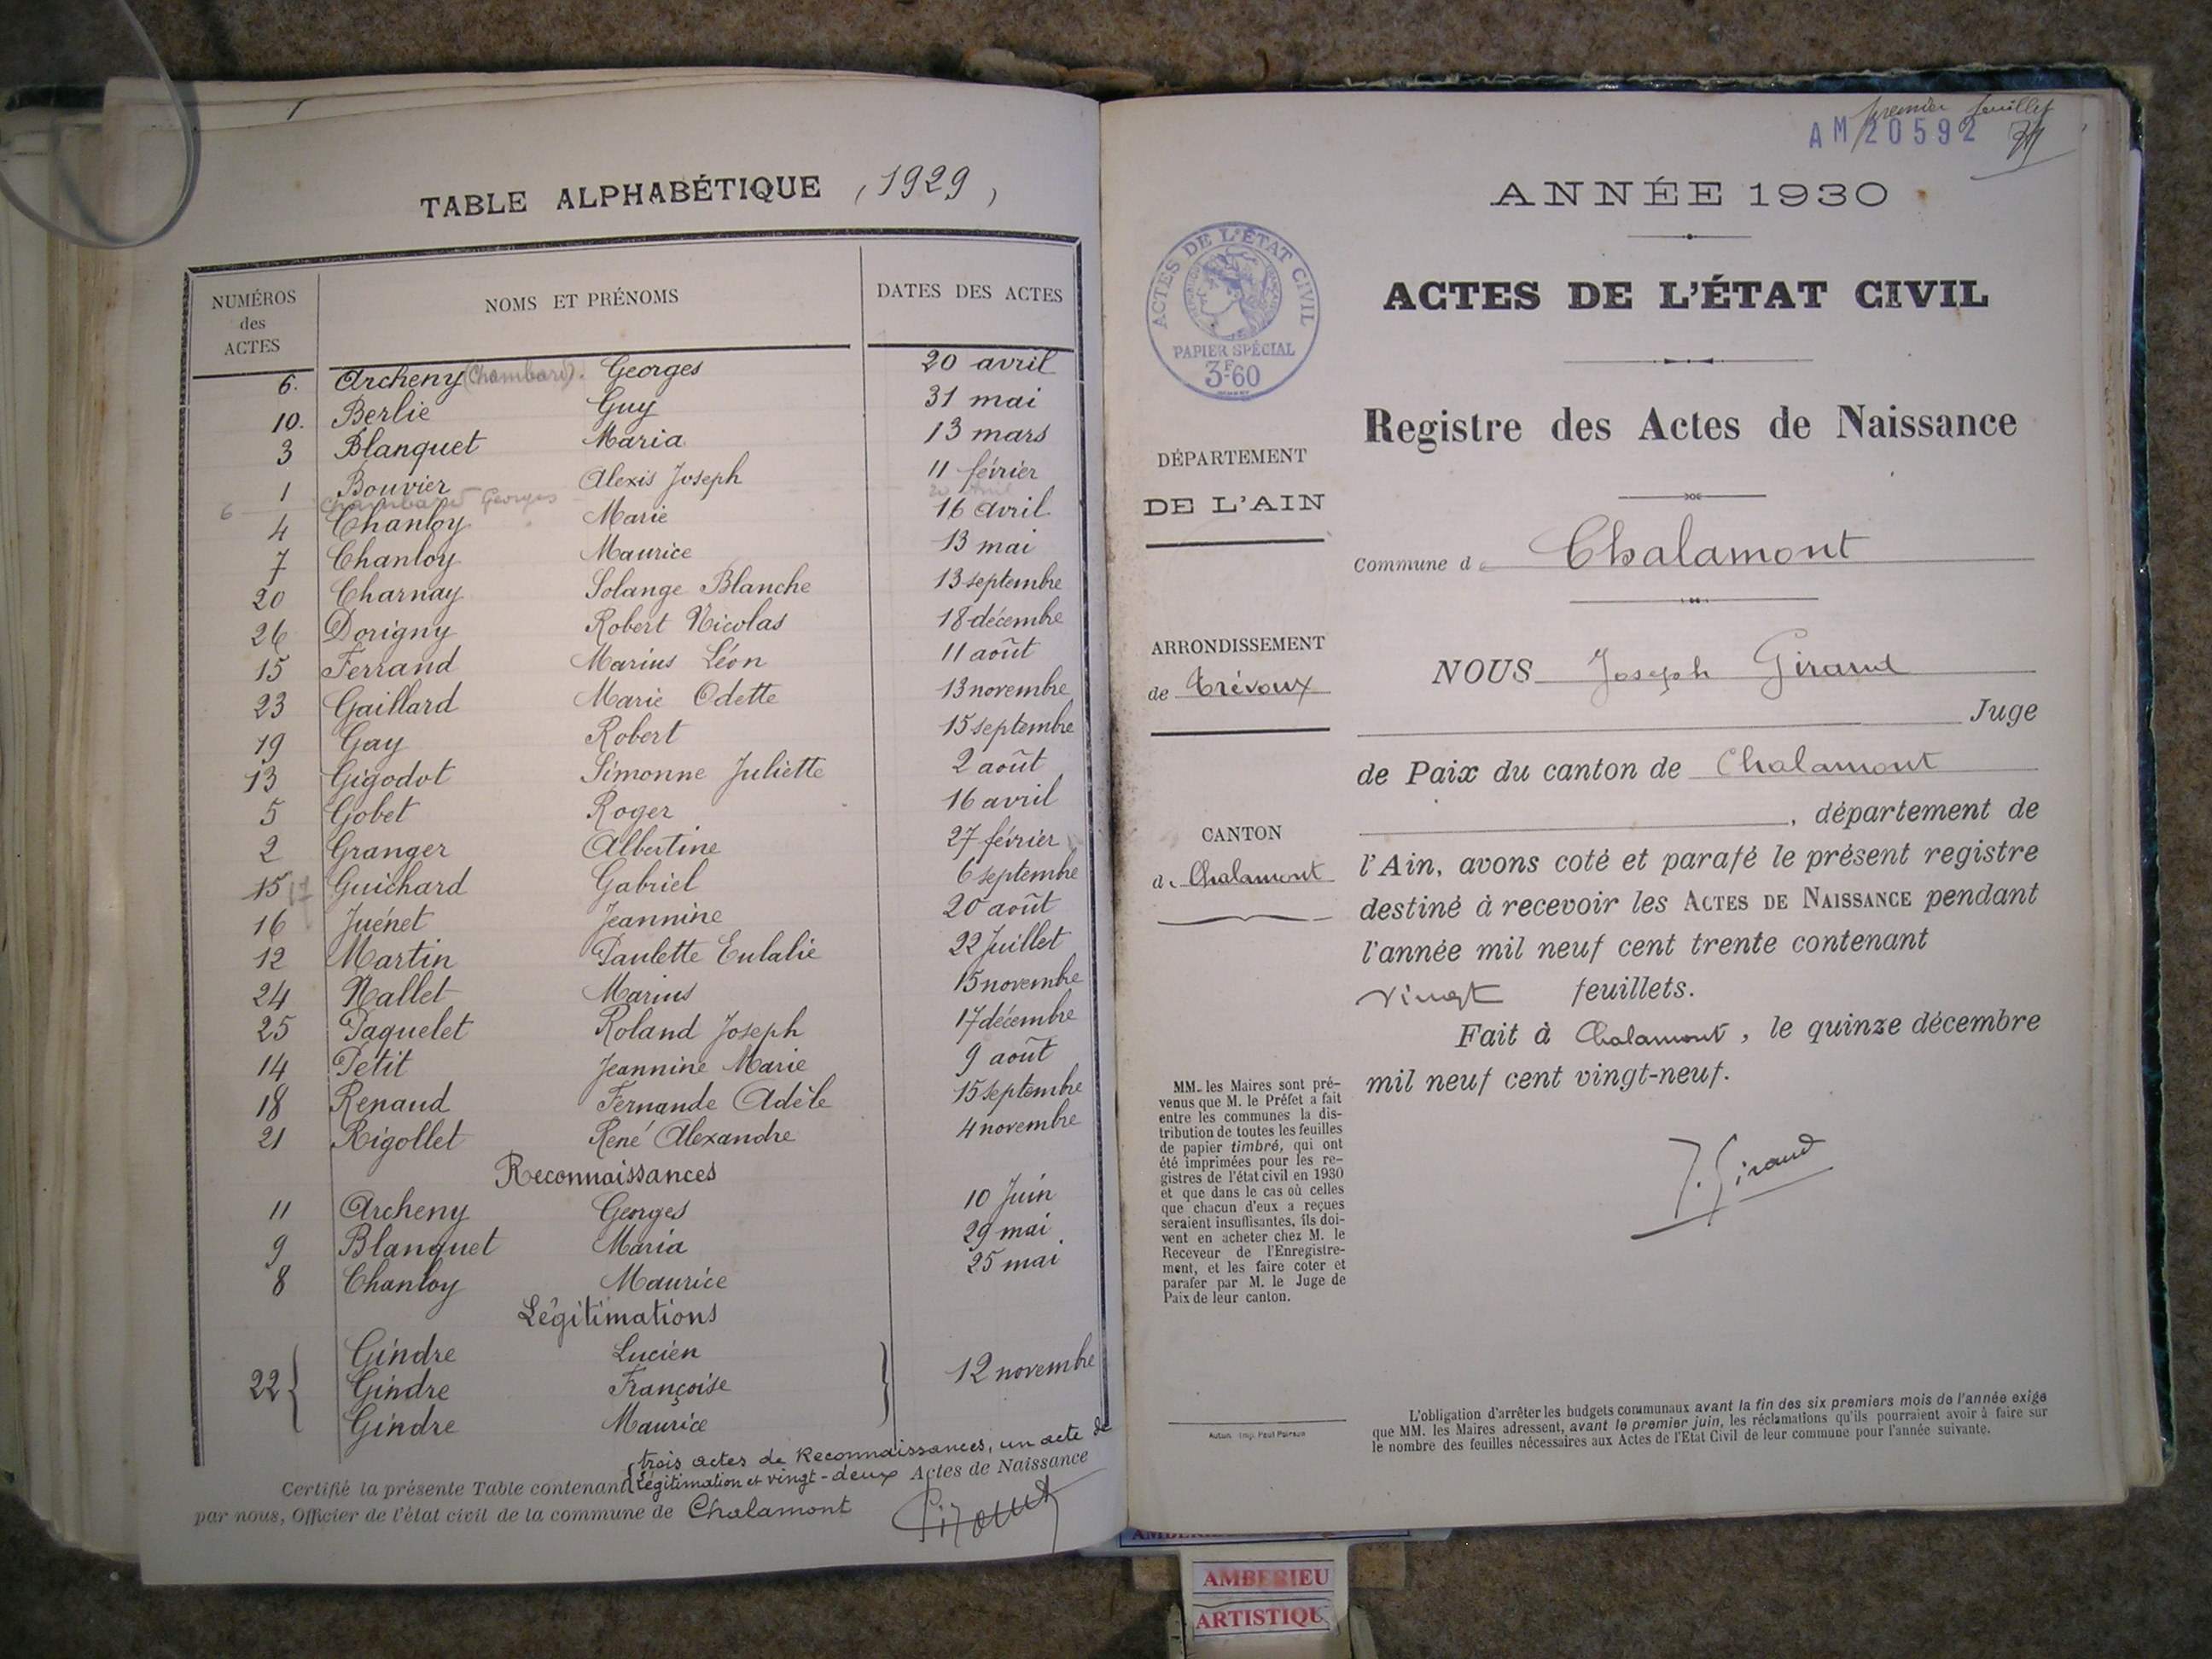 TABLE ALPHABÉTIQUE (1929)
NUMÉROS des ACTES NOMS ET PRÉNOMS DATES DES ACTES
6. Archeny (Chambard). Georges 20 avril
10. Berlie Guy 31 mai
3 Blanquet Maria 13 mars
1 Bouvier Alexis Joseph 11 février
6 Chambard Georges 20 avril
4 Chanloy Marie 16 avril
7 Chanloy Maurice 13 mai
20 Charnay Solange Blanche 13 septembre
26 Dorigny Robert Nicolas 18 décembre
15 Ferrand Marius Léon 11 août
23 Gaillard Marie Odette 13 novembre
19 Gay Robert 15 septembre
13 Gigodot Simonne Juliette 2 août
5 Gobet Roger 16 avril
2 Granger Albertine 27 février
15 17 Guichard Gabriel 6 septembre
16 Juénet Jeannine 20 août
12 Martin Paulette Eulalie 22 Juillet
24 Nallet Marius 15 novembre
25 Paquelet Roland Joseph 17 décembre
14 Petit Jeannine Marie 9 août
18 Renaud Fernande Adèle 15 septembre
21 Rigollet René Alexandre 4 novembre
Reconnaissances
11 Archeny Georges 10 Juin
9 Blanquet Maria 29 mai
8 Chanloy Maurice 25 mai
Légitimations
Gindre Lucien
22 Gindre Françoise 12 novembre
Gindre Maurice
trois actes de Reconnaissances, un acte de
Certifié la présente Table contenant Légitimation et vingt-deux Actes de Naissance
par nous, Officier de l'état civil de la commune de Chalamont
premier feuillet
AM 20592
ANNÉE 1930
ACTES DE L'ÉTAT CIVIL
ACTES DE L'ÉTAT CIVIL
RÉPUBLIQUE FRANÇAISE
PAPIER SPÉCIAL
3F60
Registre des Actes de Naissance
DÉPARTEMENT
DE L'AIN
Commune de Chalamont
ARRONDISSEMENT
de Trévoux
NOUS Joseph Giraud
Juge
de Paix du canton de Chalamont
, département de
CANTON
de Chalamont
l'Ain, avons coté et parafé le présent registre
destiné à recevoir les ACTES DE NAISSANCE pendant
l'année mil neuf cent trente contenant
vingt feuillets.
Fait à Chalamont, le quinze décembre
mil neuf cent vingt-neuf.
J. Giraud
MM. les Maires sont pré-
venus que M. le Préfet a fait
entre les communes la dis-
tribution de toutes les feuilles
de papier timbré, qui ont
été imprimées pour les re-
gistres de l'état civil en 1930
et que dans le cas où celles
que chacun d'eux a reçues
seraient insuffisantes, ils doi-
vent en acheter chez M. le
Receveur de l'Enregistre-
ment, et les faire coter et
parafer par M. le Juge de
Paix de leur canton.
Autun. Imp. Paul Poirson
L'obligation d'arrêter les budgets communaux avant la fin des six premiers mois de l'année exige
que MM. les Maires adressent, avant le premier juin, les réclamations qu'ils pourraient avoir à faire sur
le nombre des feuilles nécessaires aux Actes de l'Etat Civil de leur commune pour l'année suivante.
AMBERIEU
ARTISTIQU